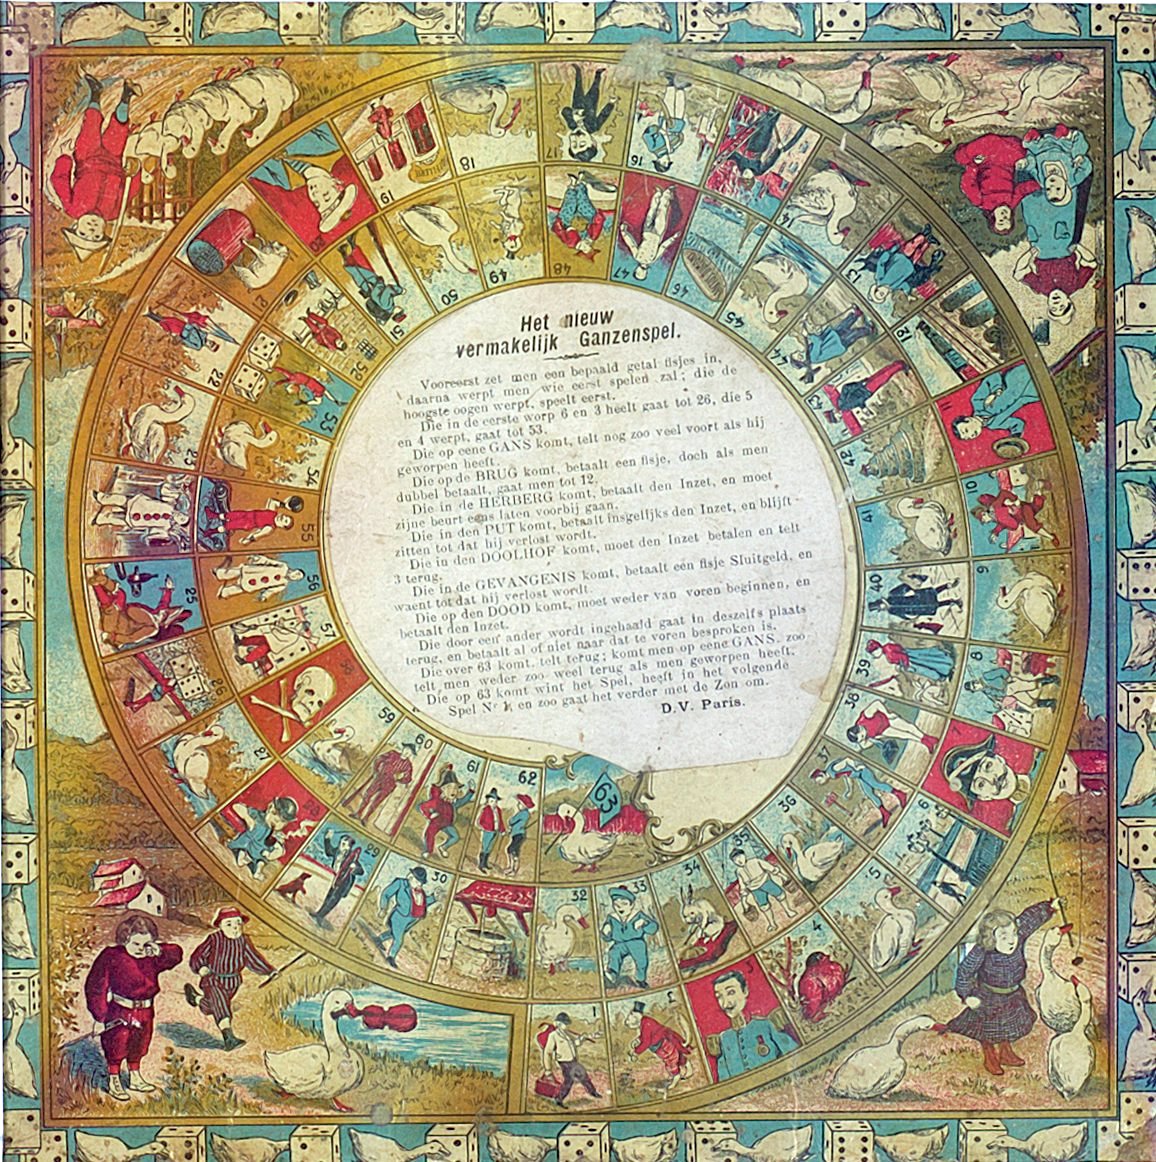 Het nieuw
vermakelijk Ganzenspel.
Vooreerst zet men een bepaald getal fisjes in,
daarna werpt men wie eerst spelen zal; die de
hoogste oogen werpt, speelt eerst.
Die in de eerste worp 6 en 3 heelt gaat tot 26, die 5
en 4 werpt, gaat tot 53.
Die op eene GANS komt, telt nog zoo veel voort als hij
geworpen heeft.
Die op de BRUG komt, betaalt een fisje, doch als men
dubbel betaalt, gaat men tot 12.
Die in de HERBERG komt, betaalt den Inzet, en moet
zijne beurt eens laten voorbij gaan.
Die in den PUT komt, betaalt insgelijks den Inzet, en blijft
zitten tot dat hij verlost wordt.
Die in den DOOLHOF komt, moet den Inzet betalen en telt
3 terug.
Die in de GEVANGENIS komt, betaalt een fisje Sluitgeld, en
waent tot dat hij verlost wordt.
Die op den DOOD komt, moet weder van voren beginnen, en
betaalt den Inzet.
Die door een ander wordt ingehaald gaat in deszelfs plaats
terug, en betaalt al of niet naar dat te voren besproken is.
Die over 63 komt, telt terug; komt men op eene GANS, zoo
telt men weder zoo veel terug als men geworpen heeft.
Die op 63 komt wint het Spel, heeft in het volgende
Spel Nr 1, en zoo gaat het verder met de Zon om.
D.V. Paris.
1
4
5
6
8
9
10
11
12
13
14
16
17
18
19
21
22
23
25
26
27
29
30
32
33
34
35
36
37
38
39
40
41
42
43
44
45
46
47
48
49
50
51
52
53
54
55
56
57
58
59
60
61
62
63